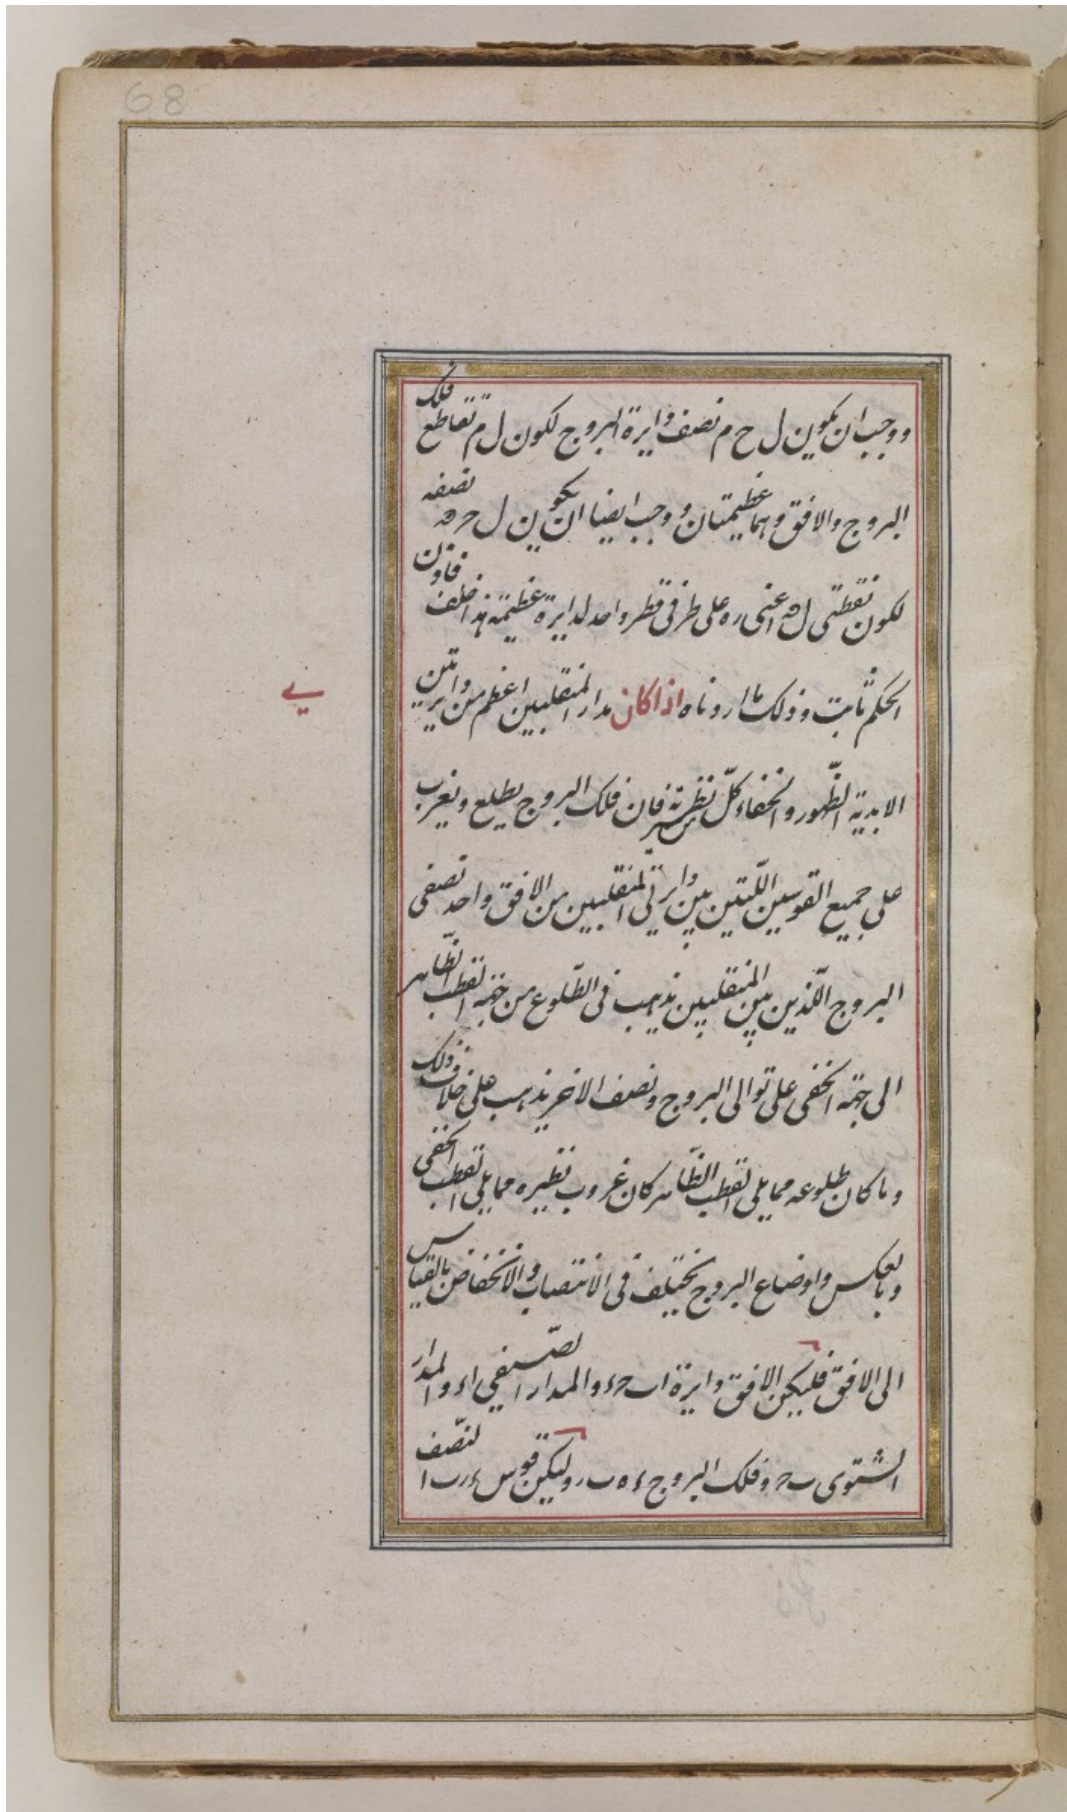 68
ووجب ان يكون ل ح م نصف دايرة البروج لكون ل م تقاطع فلك
البروج والافق وهما عظيمتان ووجب ايضا ان يكون ل ح ه نصفه
لكون نقطتى ل ه اعنى ره على طرفى قطر واحد لدايرة عظيمة هذا خلف فاذن
الحكم ثابت وذلك ما اردناه اذا كان مدار المنقلبين اعظم من دايرتين
يب
الابدية الظّهور والخفاء كلّ نظيرته فان فلك البروج يطلع ويغرب
على جميع القوسين اللّتين بين دايرتى المنقلبين من الافق واحد نصفى
البروج اللّذين بين المنقلبين يذهب فى الطّلوع من جهة القطب الظّاهر
الى جهة الخفى على توالى البروج ونصف الاخر يذهب على خلاف ذلك
وما كان طلوعه مما يلى القطب الظّاهر كان غروب نظيره مما يلى القطب الخفى
وبالعكس واوضاع البروج يختلف فى الانتصاب والانخفاض بالقياس
الى الافق فليكن الافق دايرة اب حء والمدار الصّيفى اء والمدار
الشتوى ب ح وفلك البروج ء ه ب ر وليكن قوس ء ر ب النّصف